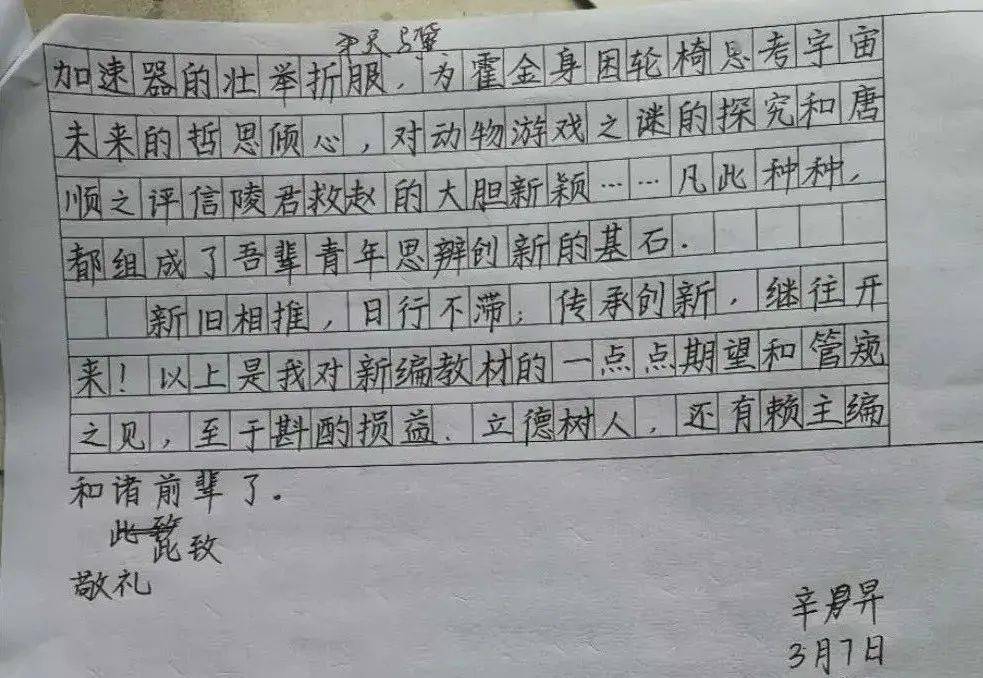 加速器的壮举折服，为霍金身困轮椅思考宇宙
未来的哲思倾心，对动物游戏之谜的探究和唐
顺之评信陵君救赵的大胆新颖……凡此种种，
都组成了吾辈青年思辨创新的基石.
新旧相推，日行不滞；传承创新，继往开
来！以上是我对新编教材的一点点期望和管窥
之见，至于斟酌损益.立德树人，还有赖主编
和诸前辈了.
此致
敬礼
3月7日